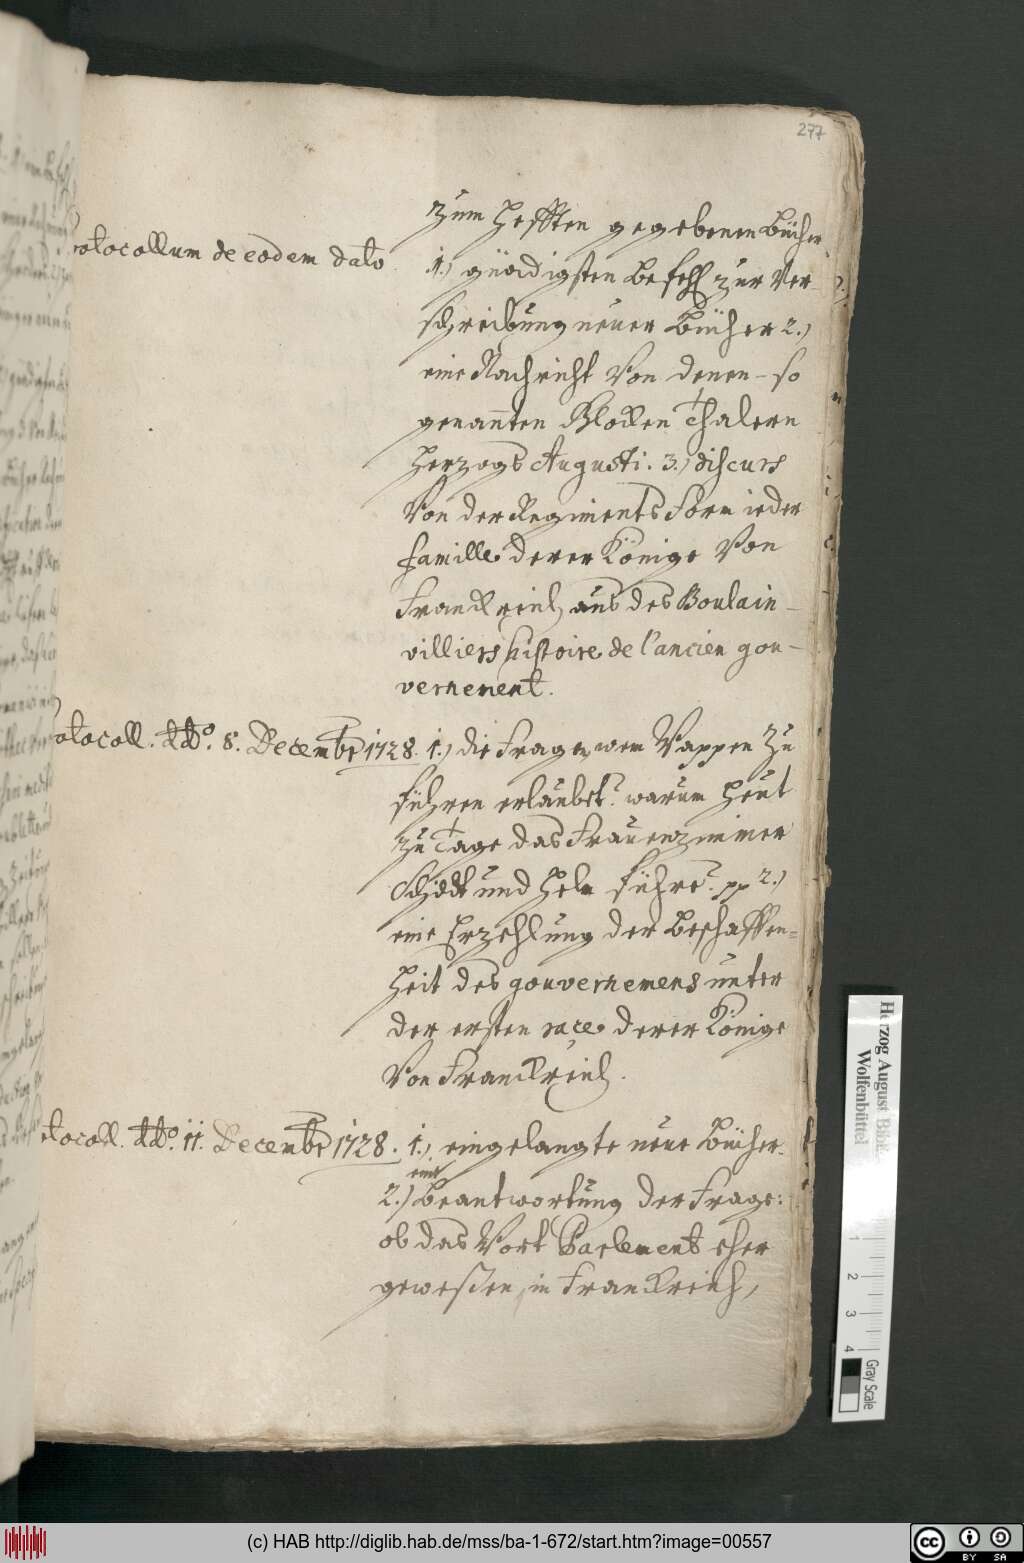 277
zum Hefften gegebenen Bücher
rotocollum de eodem dato
1.) gnädigsten Befehl zur Ver-
schreibung neuer Bücher 2.)
eine Nachricht von denen - so
genan̄ten Glocken Thalern
Herzogs Augusti. 3.) discurs
von der Regiments Form ieder
famille derer Könige von
Franckreich aus des Boulain-
villiers histoire de l'ancien gou-
vernement.
otocoll. ddo. 8. Decembr 1728. 1.) die Frage, wem Wappen zu
führen erlaubet? warum heut
zu Tage das Frauenzimmer
Schildt und Helm führe? pp 2.)
eine Erzehlung der Beschaffen=
heit des gouvernemens unter
der ersten race derer Könige
von Franckreich.
otocoll. ddo. 11. Decembr 1728. 1.) eingelangte neue Bücher.
eine
2.) Beantwortung der Frage:
ob das Wort Parlement eher
geweßen in Franckreich,
Herzog August Bibl
Wolfenbüttel
1
2
3
4
Gray Scale
(c) HAB http://diglib.hab.de/mss/ba-1-672/start.htm?image=00557
cc BY SA